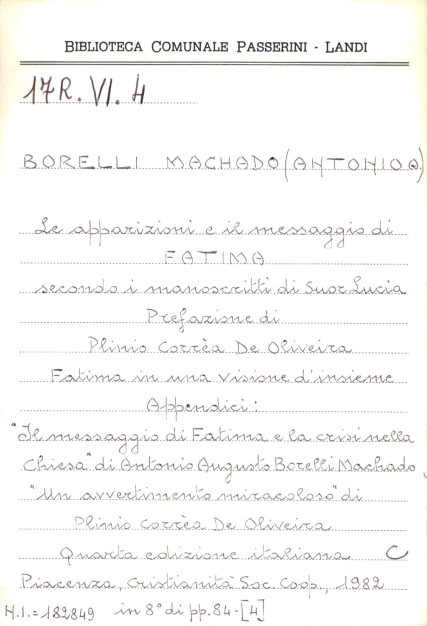 BIBLIOTECA COMUNALE PASSERINI - LANDI
17R. VI. 4
BORELLI MACHADO (ANTONIO A)
Le apparizioni e il messaggio di
FATIMA
secondo i manoscritti di Suor Lucia
Prefazione di
Plinio Corrêa De Oliveira
Fatima in una visione d'insieme
Appendici:
"Il messaggio di Fatima e la crisi nella
Chiesa" di Antonio Augusto Borelli Machado,
"Un avvertimento miracoloso" di
Plinio Corrêa De Oliveira
Quarta edizione italiana C
Piacenza, Cristianità Soc. Coop., 1982
N.I.= 182849 in 8° di pp. 84-[4]